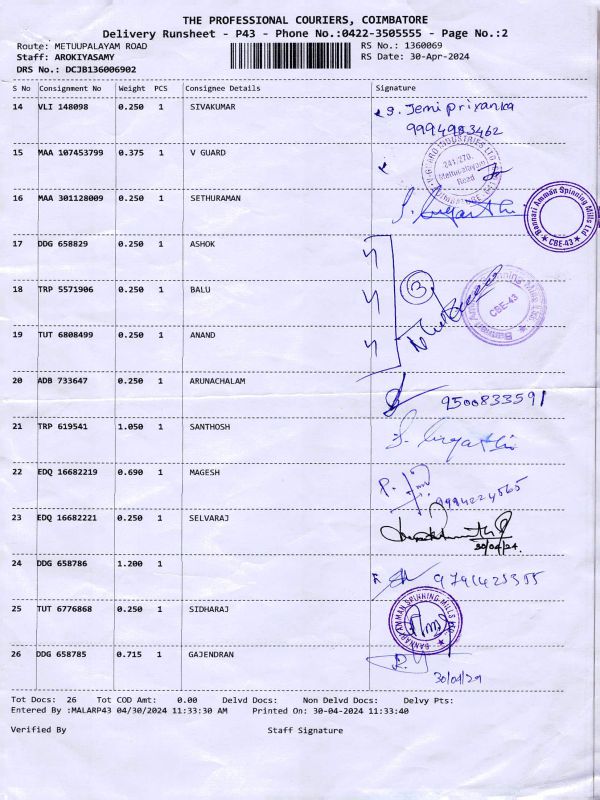 THE PROFESSIONAL COURIERS, COIMBATORE
Delivery Runsheet - P43 - Phone No.:0422-3505555 - Page No.:2
Route: METUUPALAYAM ROAD RS No.: 1360069
Staff: AROKIYASAMY RS Date: 30-Apr-2024
DRS No.: DCJB136006902
S No Consignment No Weight PCS Consignee Details Signature
14 VLI 148098 0.250 1 SIVAKUMAR g. Jemi priyanka
9994983462
15 MAA 107453799 0.375 1 V GUARD
V-GUARD INDUSTRIES LTD
241/270,
Mettupalayam
Road
16 MAA 301128009 0.250 1 SETHURAMAN
Bannari Amman Spinning Mills Ltd
CBE-43
17 DDG 658829 0.250 1 ASHOK
18 TRP 5571906 0.250 1 BALU 3
CBE-43
19 TUT 6808499 0.250 1 ANAND
20 ADB 733647 0.250 1 ARUNACHALAM 9500833591
21 TRP 619541 1.050 1 SANTHOSH
22 EDQ 16682219 0.690 1 MAGESH
23 EDQ 16682221 0.250 1 SELVARAJ
30/04/24.
24 DDG 658786 1.200 1
25 TUT 6776868 0.250 1 SIDHARAJ
BANNARI AMMAN SPINNING MILLS LTD
26 DDG 658785 0.715 1 GAJENDRAN
30/04/24
Tot Docs: 26 Tot COD Amt: 0.00 Delvd Docs: Non Delvd Docs: Delvy Pts:
Entered By :MALARP43 04/30/2024 11:33:30 AM Printed On: 30-04-2024 11:33:40
Verified By Staff Signature